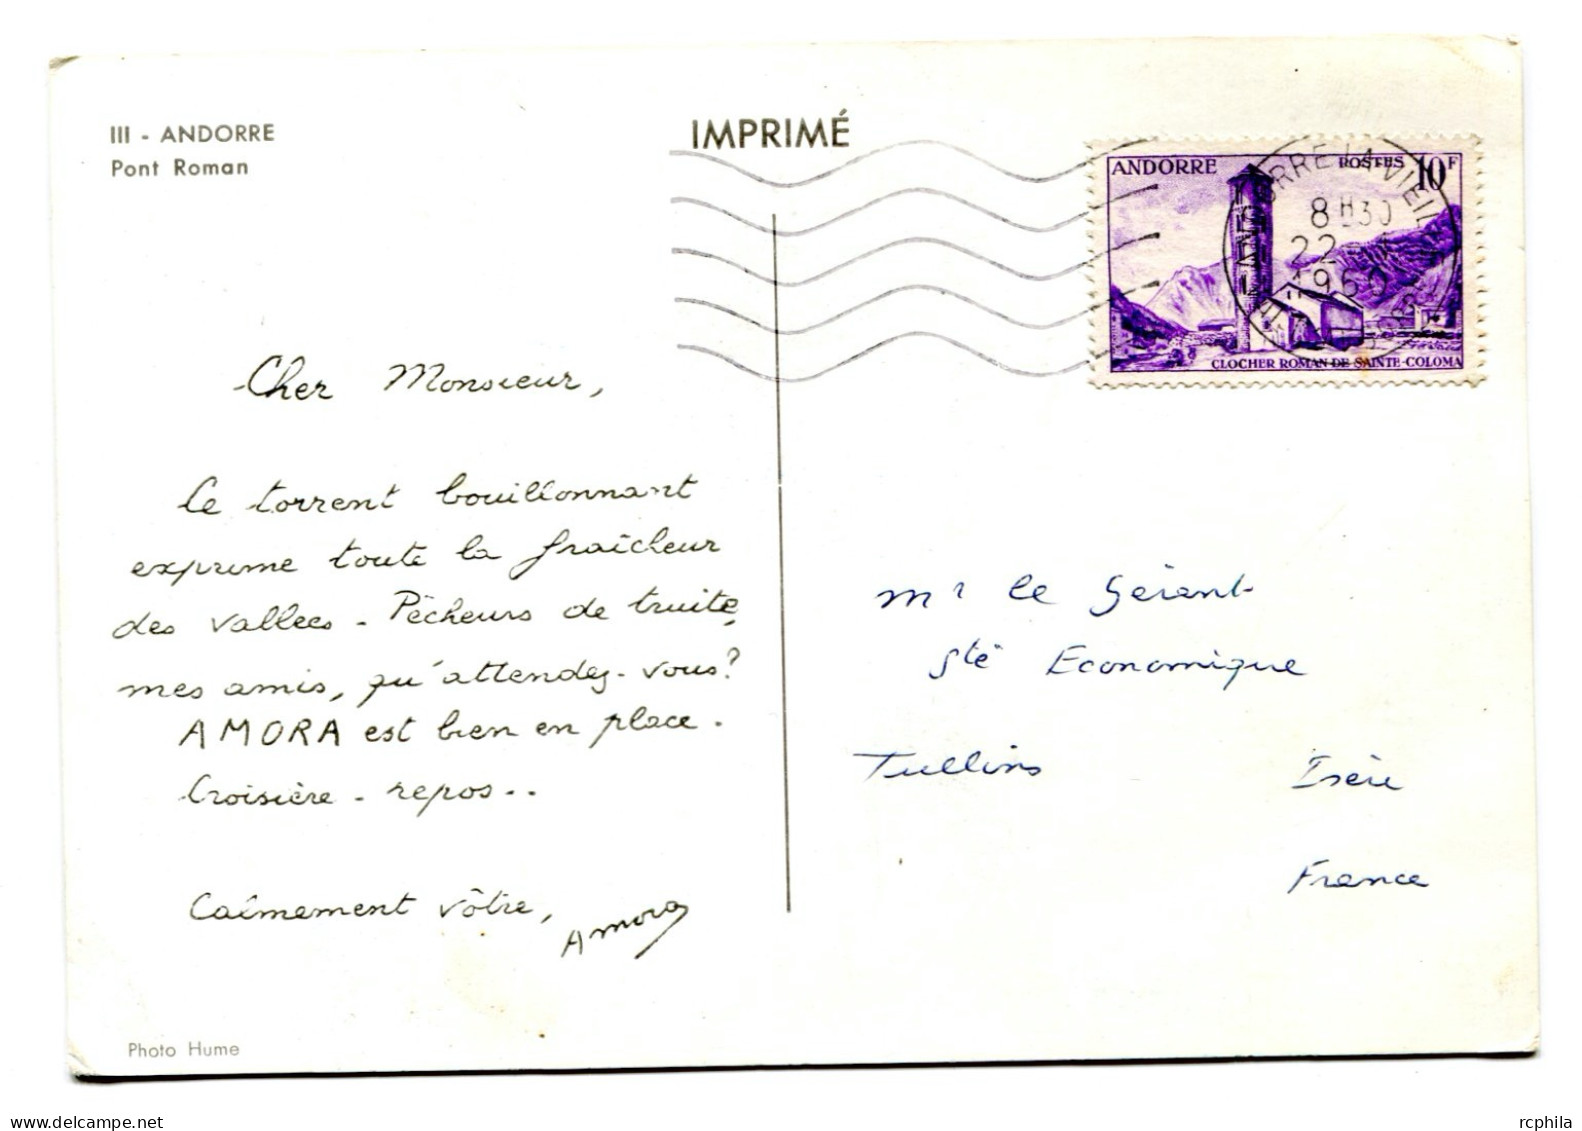 III - ANDORRE
Pont Roman
IMPRIMÉ
ANDORRE POSTES 10F
8H30
22
1960
CLOCHER ROMAN DE SAINTE-COLOMA
Cher Monsieur,
Le torrent bouillonnant
exprime toute la fraîcheur
des vallées - Pêcheurs de truite,
mes amis, qu'attendez-vous?
AMORA est bien en place.
Croisière - repos..
Calmement vôtre,
Amora
Mr le Gérant
Sté Economique
Tullins Isère
France
Photo Hume
delcampe.net
rcphila